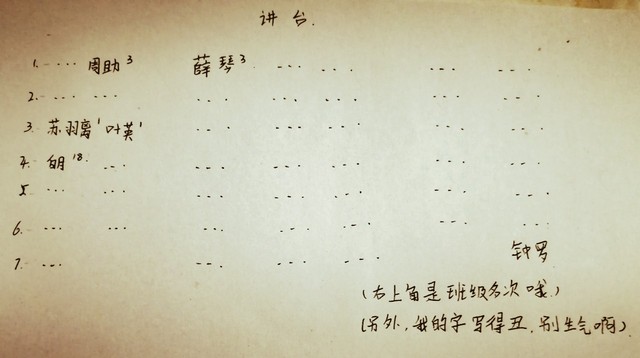 讲台.
1. ... 周助³ 薛琴³ ... ... ... ...
2. ... ... ... ... ... ... ...
3. 苏羽离¹ 叶英¹ ... ... ... ... ...
4. 白月¹⁸. ... ... ... ... ... ...
5. ... ... ... ... ... ... ...
6. ... ... ... ... ... ... ...
钟罗
7. ... ... ... ...
(右上角是班级名次哦.)
(另外,我的字写得丑,别生气啊)